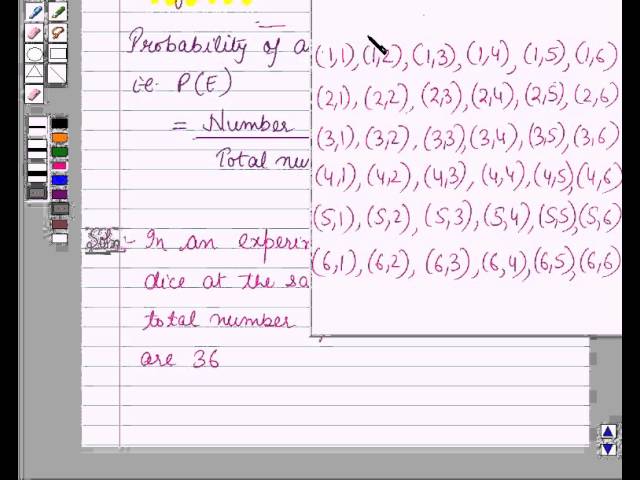 Probability of a
i.e. P(E)
= Number
Total nu
Soln:- In an experi
dice at the sa
total number
are 36
(1,1), (1,2), (1,3), (1,4), (1,5), (1,6)
(2,1), (2,2), (2,3), (2,4), (2,5), (2,6)
(3,1), (3,2), (3,3), (3,4), (3,5), (3,6)
(4,1), (4,2), (4,3), (4,4), (4,5), (4,6)
(5,1), (5,2), (5,3), (5,4), (5,5), (5,6)
(6,1), (6,2), (6,3), (6,4), (6,5), (6,6)